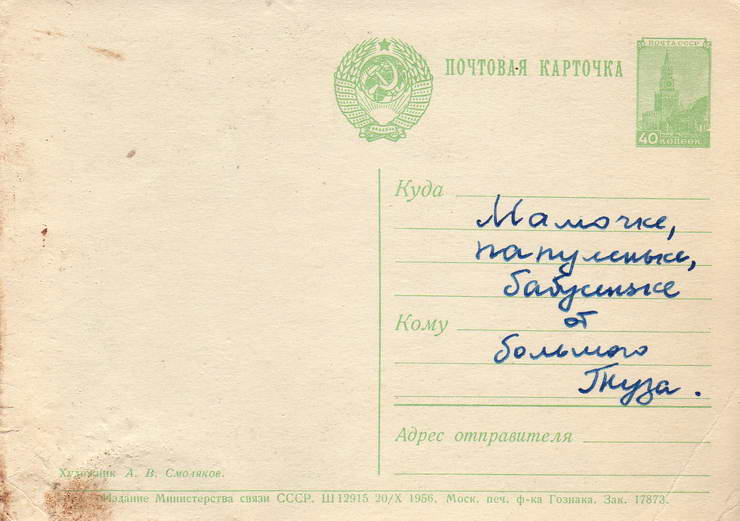 ПОЧТОВАЯ КАРТОЧКА
ПОЧТА СССР
40 КОПЕЕК
Куда
Мамочке,
папуленьке,
бабусеньке
Кому
от
большого
Туза.
Адрес отправителя
Художник А. В. Смоляков.
Издание Министерства связи СССР. Ш 12915 20/X 1956. Моск. печ. ф-ка Гознака. Зак. 17873.